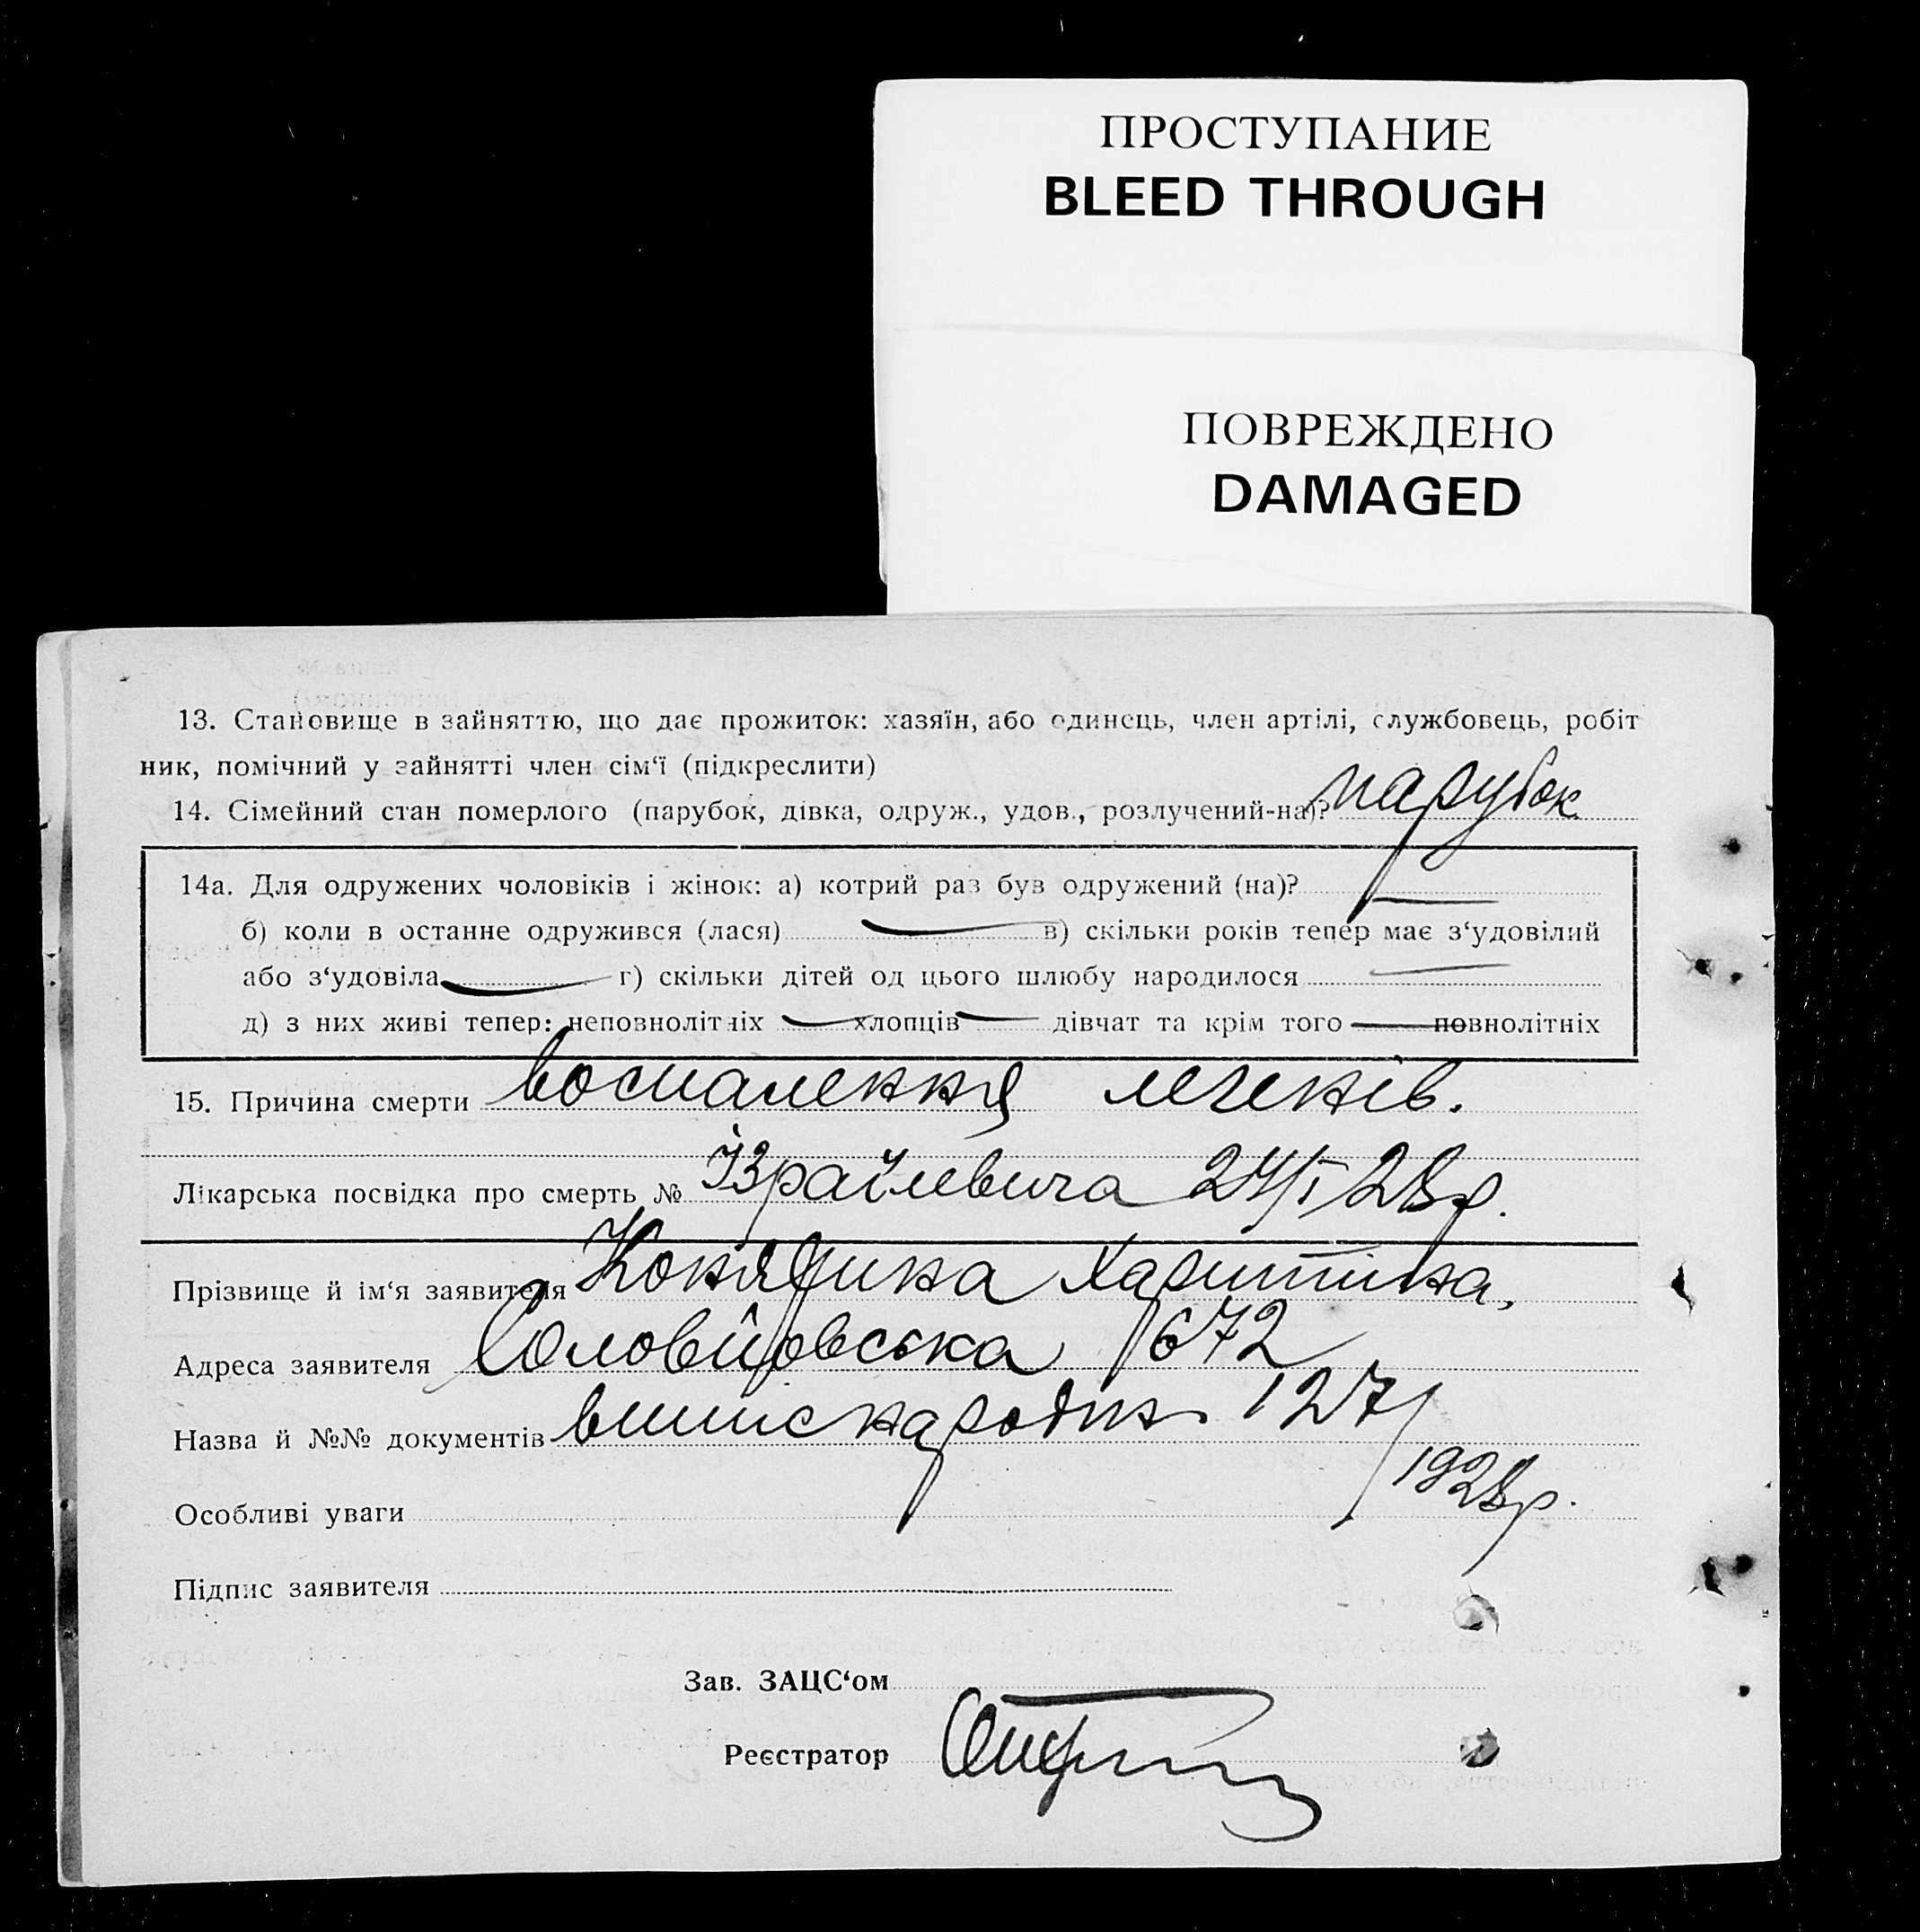 ПРОСТУПАНИЕ
BLEED THROUGH
ПОВРЕЖДЕНО
DAMAGED
13. Становище в зайняттю, що дає прожиток: хазяїн, або одинець, член артілі, службовець, робіт
ник, помічний у зайнятті член сім‘ї (підкреслити)
14. Сімейний стан померлого (парубок, дівка, одруж., удов., розлучений-на)? парубок
14а. Для одружених чоловіків і жінок: а) котрий раз був одружений (на)? —
б) коли в останне одружився (лася) — в) скільки років тепер має з‘удовілий
або з‘удовіла — г) скільки дітей од цього шлюбу народилося —
д) з них живі тепер: неповнолітніх — хлопців — дівчат та крім того — повнолітніх
15. Причина смерти воспалення легенів.
Лікарська посвідка про смерть № Ізраілевича 24/I 28р.
Прізвище й ім‘я заявителя Харитина,
Адреса заявителя 672
Назва й №№ документів 127/
1928р.
Особливі уваги
Підпис заявителя
Зав. ЗАЦС‘ом
Реєстратор